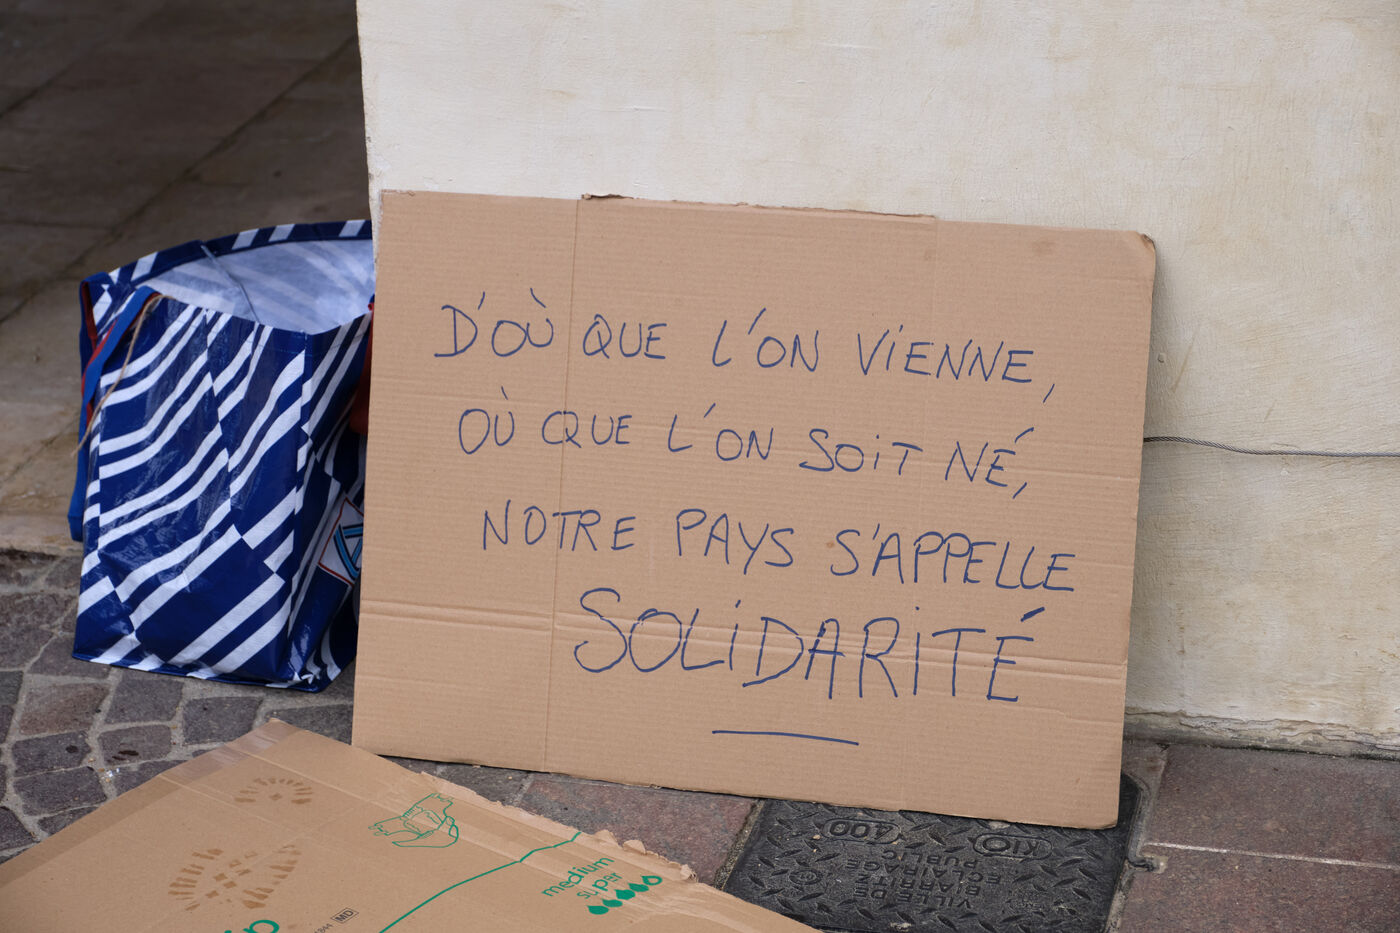 D'OÙ QUE L'ON VIENNE,
OÙ QUE L'ON SOIT NÉ,
NOTRE PAYS S'APPELLE
SOLIDARITÉ
medium
super
MD
400
KIO
VILLE DE
BIARRITZ
ECLAIRAGE
PUBLIC